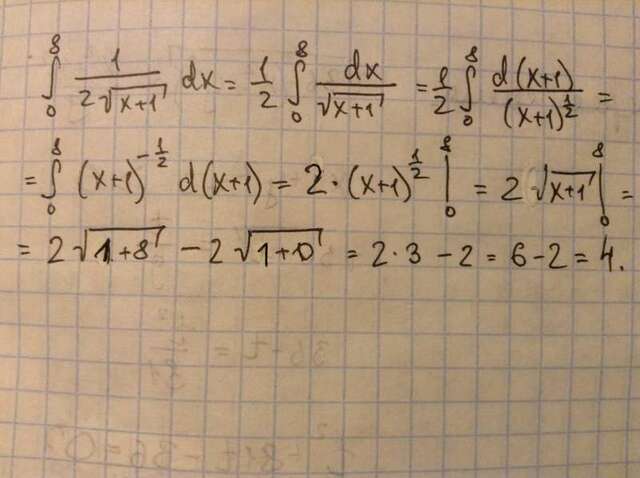 ∫₀⁸ 1/(2√(x+1)) dx = 1/2 ∫₀⁸ dx/√(x+1) = 1/2 ∫₀⁸ d(x+1)/(x+1)^(1/2) =
= ∫₀⁸ (x+1)^(-1/2) d(x+1) = 2·(x+1)^(1/2) |₀⁸ = 2√(x+1) |₀⁸ =
= 2√(1+8) - 2√(1+0) = 2·3 - 2 = 6-2 = 4.